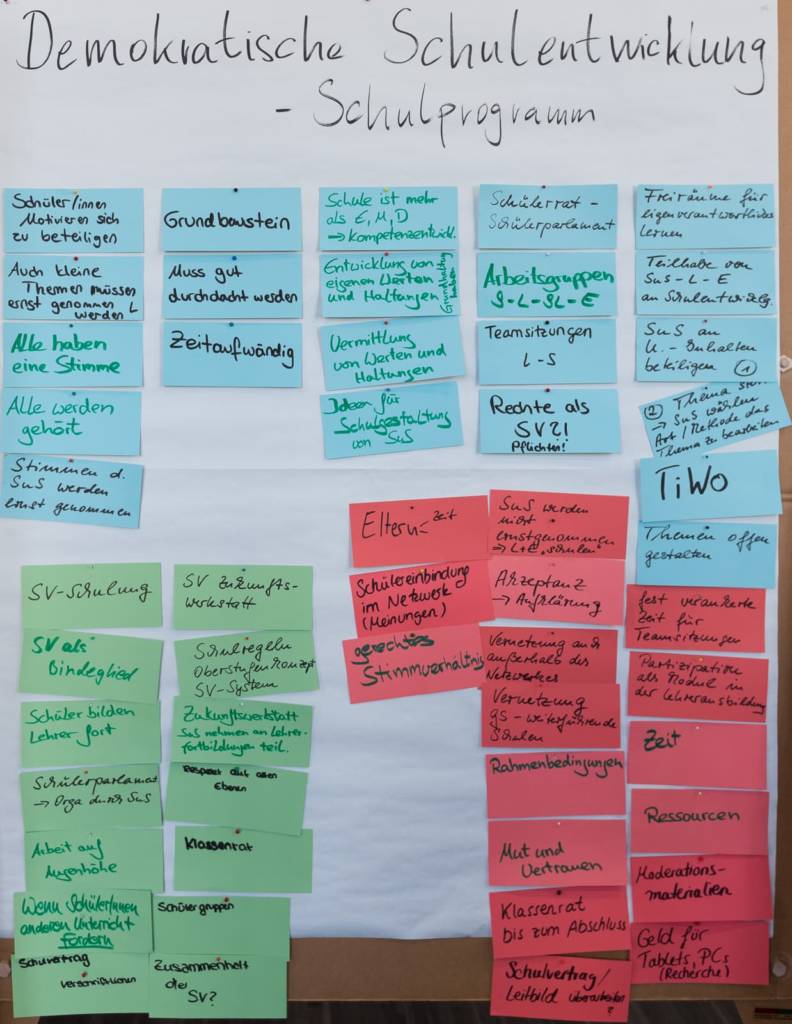 Demokratische Schulentwicklung
- Schulprogramm
Schüler/innen
Motivieren sich
zu beteiligen
Auch kleine
Themen müssen
ernst genommen
werden
Alle haben
eine Stimme
Alle werden
gehört
Stimmen d.
SuS werden
ernst genommen
Grundbaustein
Muss gut
durchdacht werden
Zeitaufwändig
Schule ist mehr
als E, M, D
→ Kompetenzentwickl.
Entwicklung von
eigenen Werten
und Haltungen
Grundhaltung
haben
Vermittlung
von Werten und
Haltungen
Ideen für
Schulgestaltung
von SuS
Schülerrat -
Schülerparlament
Arbeitsgruppen
S-L-SL-E
Teamsitzungen
L-S
Rechte als
SV?!
Pflichten!
Freiräume für
eigenverantwortliches
Lernen
Teilhabe von
SuS-L-E
an Schulentwicklg.
SuS an
U.-Inhalten
beteiligen ①
② Thema
→ SuS wählen
Art/Methode das
Thema zu bearbeiten
TiWo
Themen offen
gestalten
SV-Schulung
SV als
Bindeglied
Schüler bilden
Lehrer fort
Schülerparlament
→ Orga durch SuS
Arbeit auf
Augenhöhe
Wenn SchülerInnen
anderen Unterricht
fordern
Schulvertrag
verschriftlichen
SV Zukunfts-
werkstatt
Schulregeln
Oberstufenkonzept
SV-System
Zukunftswerkstatt
SuS nehmen an Lehrer-
fortbildungen teil.
Respekt auf allen
Ebenen
Klassenrat
Schülergruppen
Zusammenhalt
der
SV?
Eltern - Zeit
Schülereinbindung
im Netzwerk
(Meinungen)
gerechtes
Stimmverhältnis
SuS werden
nicht
ernstgenommen
→ L+E „schulen“
Akzeptanz
→ Aufklärung
Vernetzung auch
außerhalb des
Netzwerkes
Vernetzung
GS - weiterführende
Schulen
Rahmenbedingungen
Mut und
Vertrauen
Klassenrat
bis zum Abschluss
Schulvertrag/
Leitbild überarbeiten
?
fest verankerte
Zeit für
Teamsitzungen
Partizipation
als Modul in
der Lehrerausbildung
Zeit
Ressourcen
Moderations-
materialien
Geld für
Tablets, PCs
(Recherche)